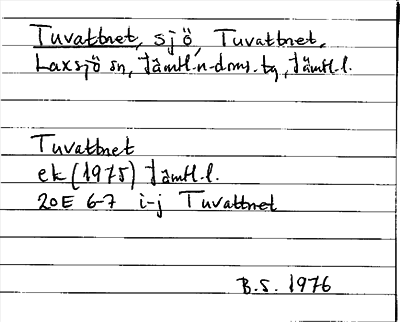 Tuvattnet, sjö, Tuvattnet,
Laxsjö sn, Jämtl.n.doms.tg, Jämtl.l.
Tuvattnet
ek (1975) Jämtl.l.
20E 6-7 i-j Tuvattnet
B.S. 1976